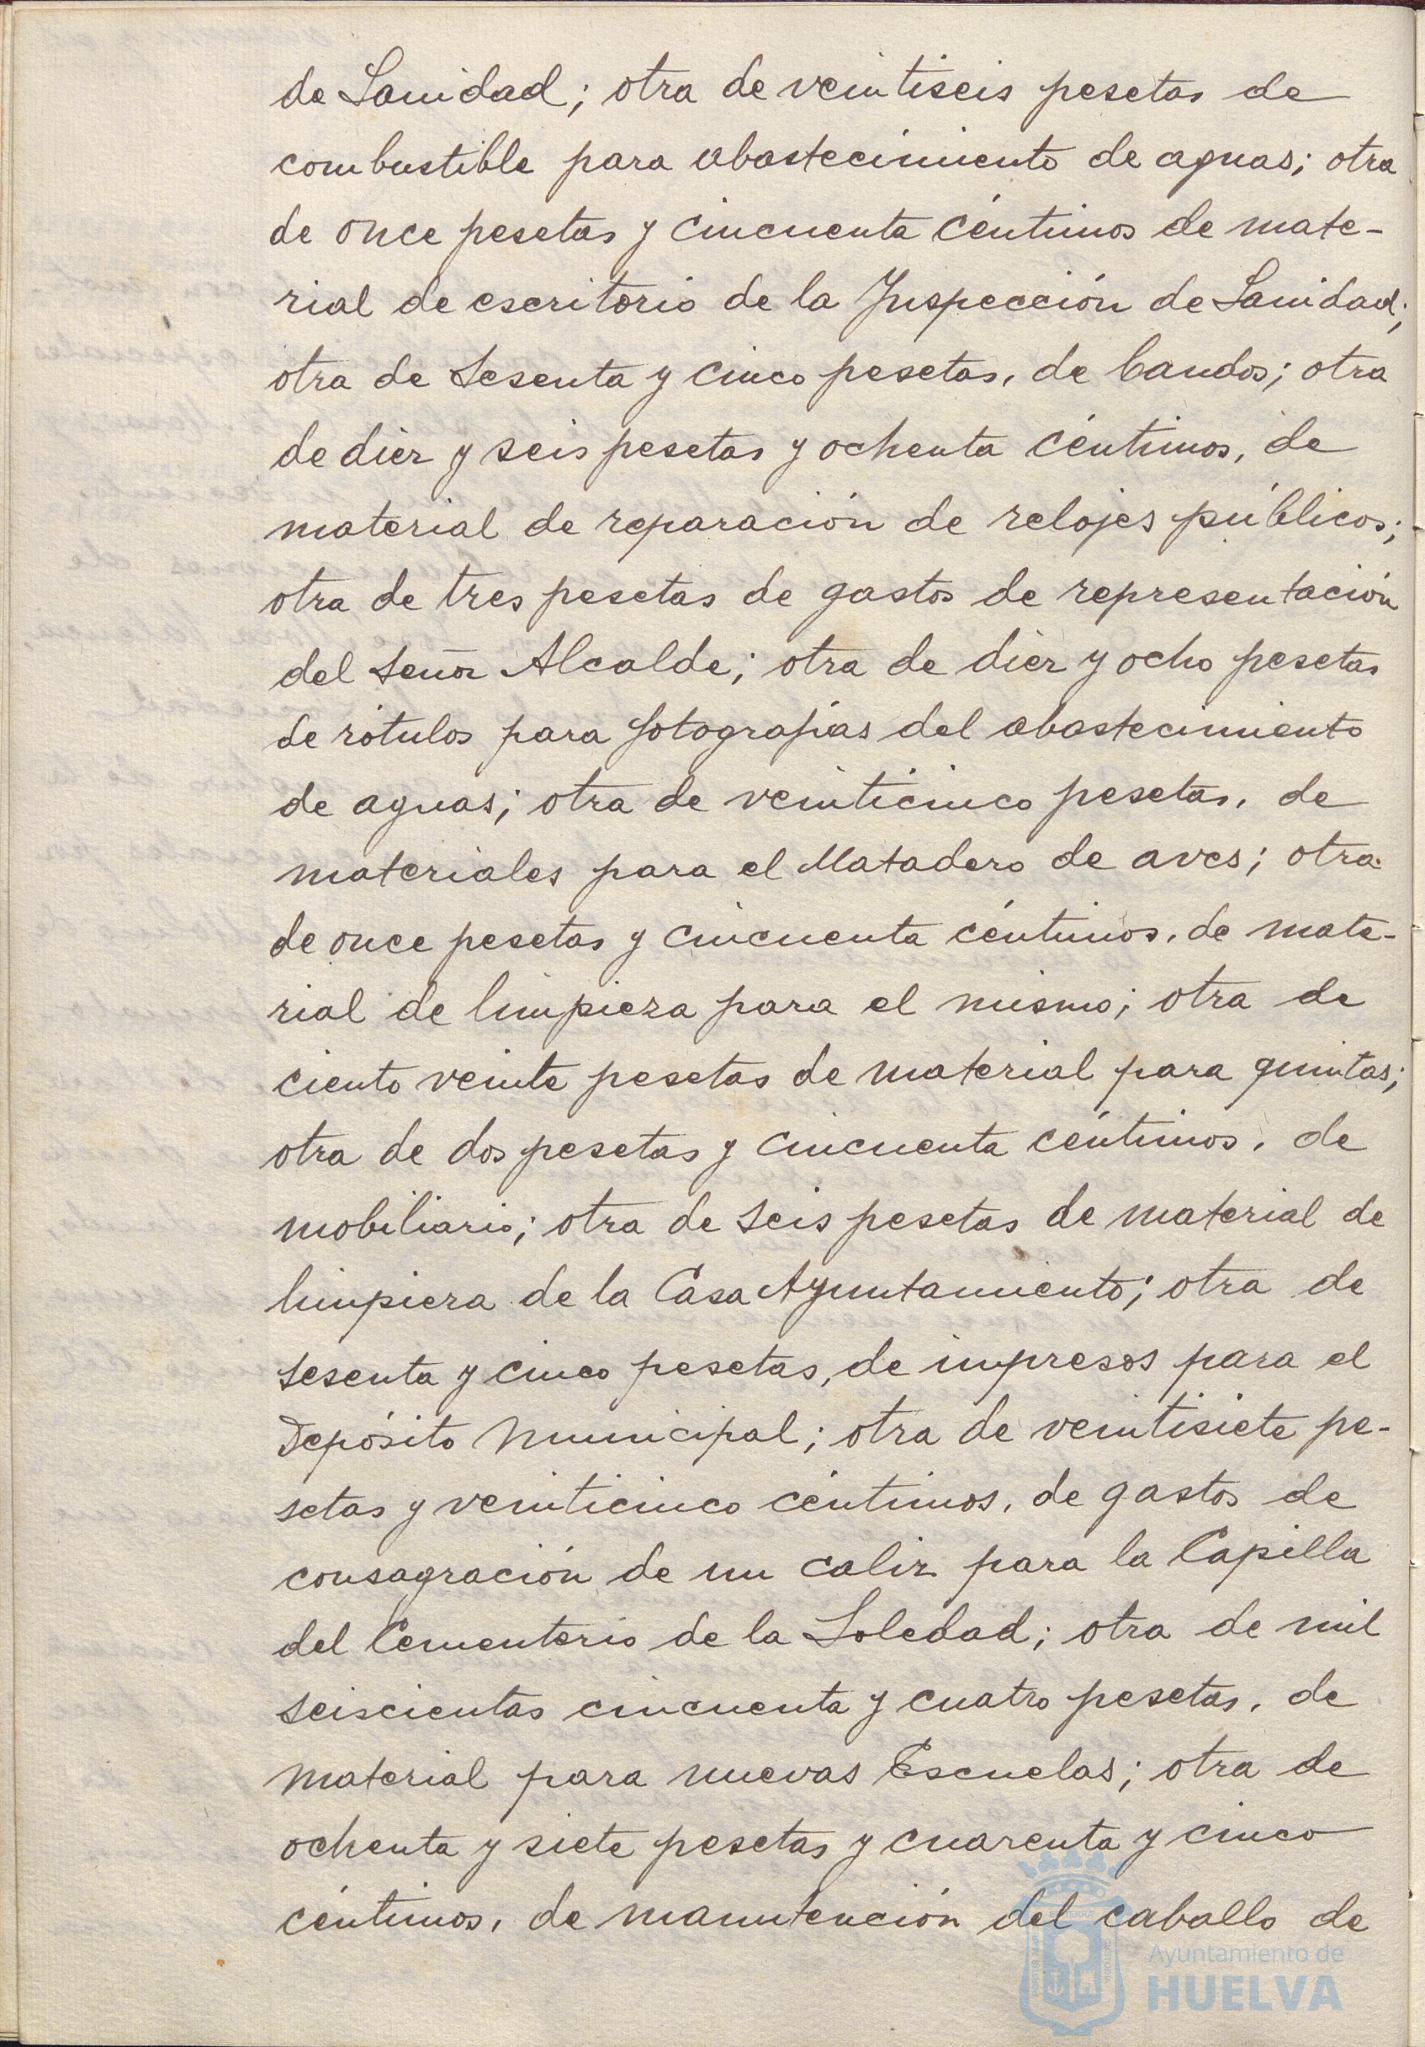 de Sanidad; otra de veintiseis pesetas de
combustible para abastecimiento de aguas; otra
de once pesetas y cincuenta céntimos de mate-
rial de escritorio de la Inspección de Sanidad;
otra de sesenta y cinco pesetas, de bandos; otra
de diez y seis pesetas y ochenta céntimos, de
material de reparación de relojes públicos;
otra de tres pesetas de gastos de representación
del Señor Alcalde; otra de diez y ocho pesetas
de rótulos para fotografías del abastecimiento
de aguas; otra de veinticinco pesetas, de
materiales para el Matadero de aves; otra
de once pesetas y cincuenta céntimos, de mate-
rial de limpieza para el mismo; otra de
ciento veinte pesetas de material para quintas;
otra de dos pesetas y cincuenta céntimos, de
mobiliario; otra de seis pesetas de material de
limpieza de la Casa Ayuntamiento; otra de
sesenta y cinco pesetas, de impresos para el
Depósito Municipal; otra de veintisiete pe-
setas y veinticinco céntimos, de gastos de
consagración de un caliz para la Capilla
del Cementerio de la Soledad; otra de mil
seiscientas cincuenta y cuatro pesetas, de
material para nuevas Escuelas; otra de
ochenta y siete pesetas y cuarenta y cinco
céntimos, de manutención del caballo de
Ayuntamiento de
HUELVA